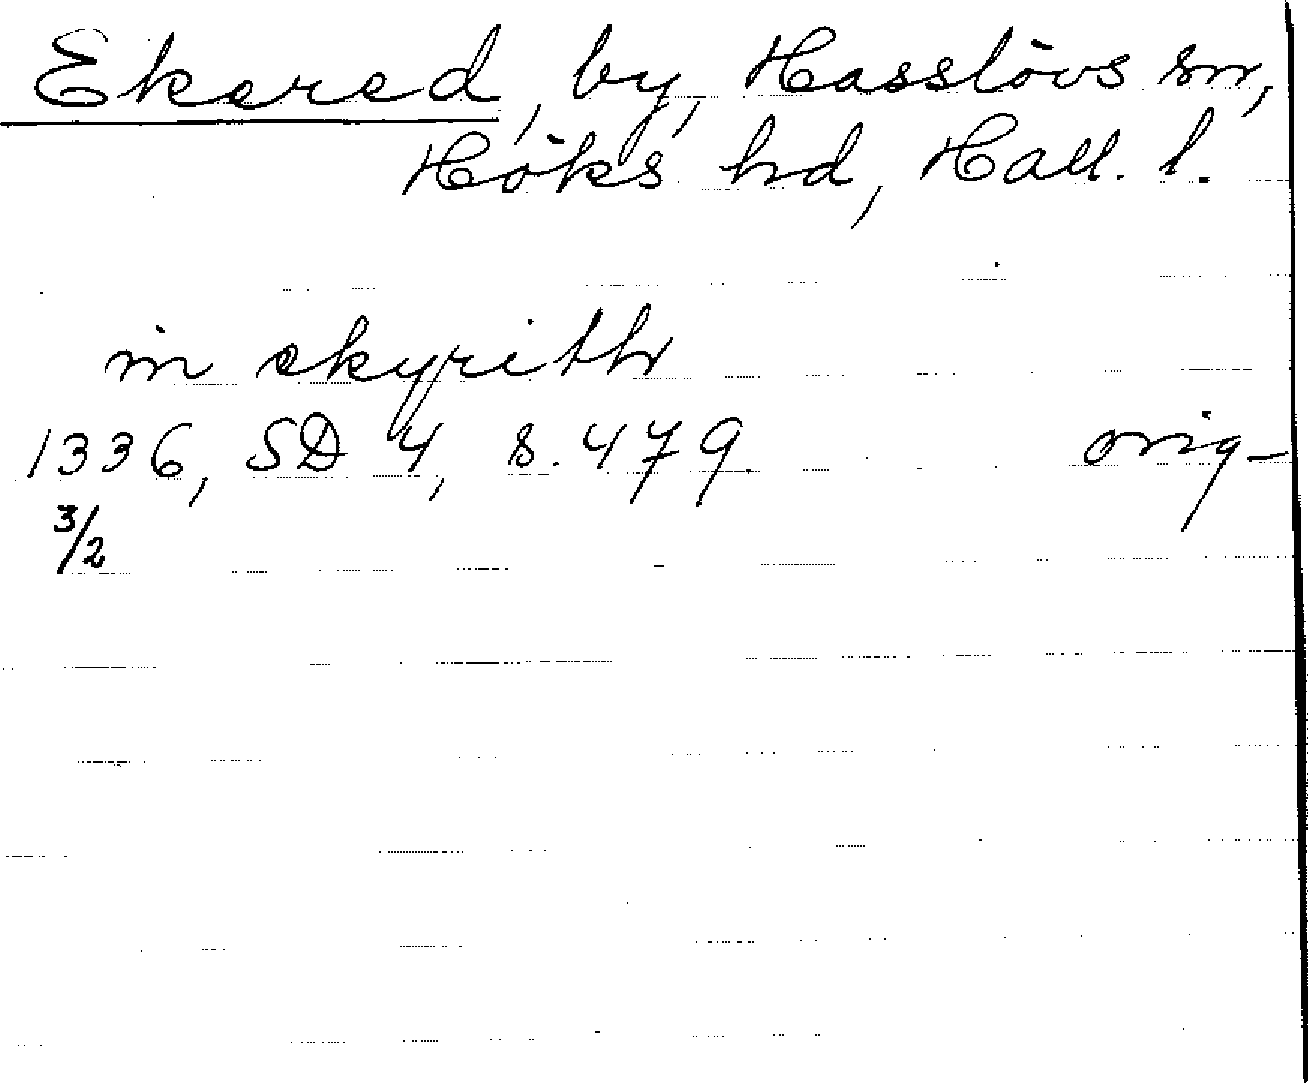 Ekered, by, Hasslövs sn,
Höks hd, Hall. l.
in ekyrith
1336, SD 4, s. 479. orig-
3/2